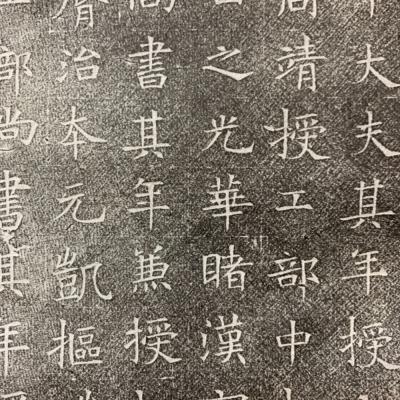 大夫其年授
靖授工部中
之光華睹漢
書其年兼授
治本元凱樞
部尚書其年